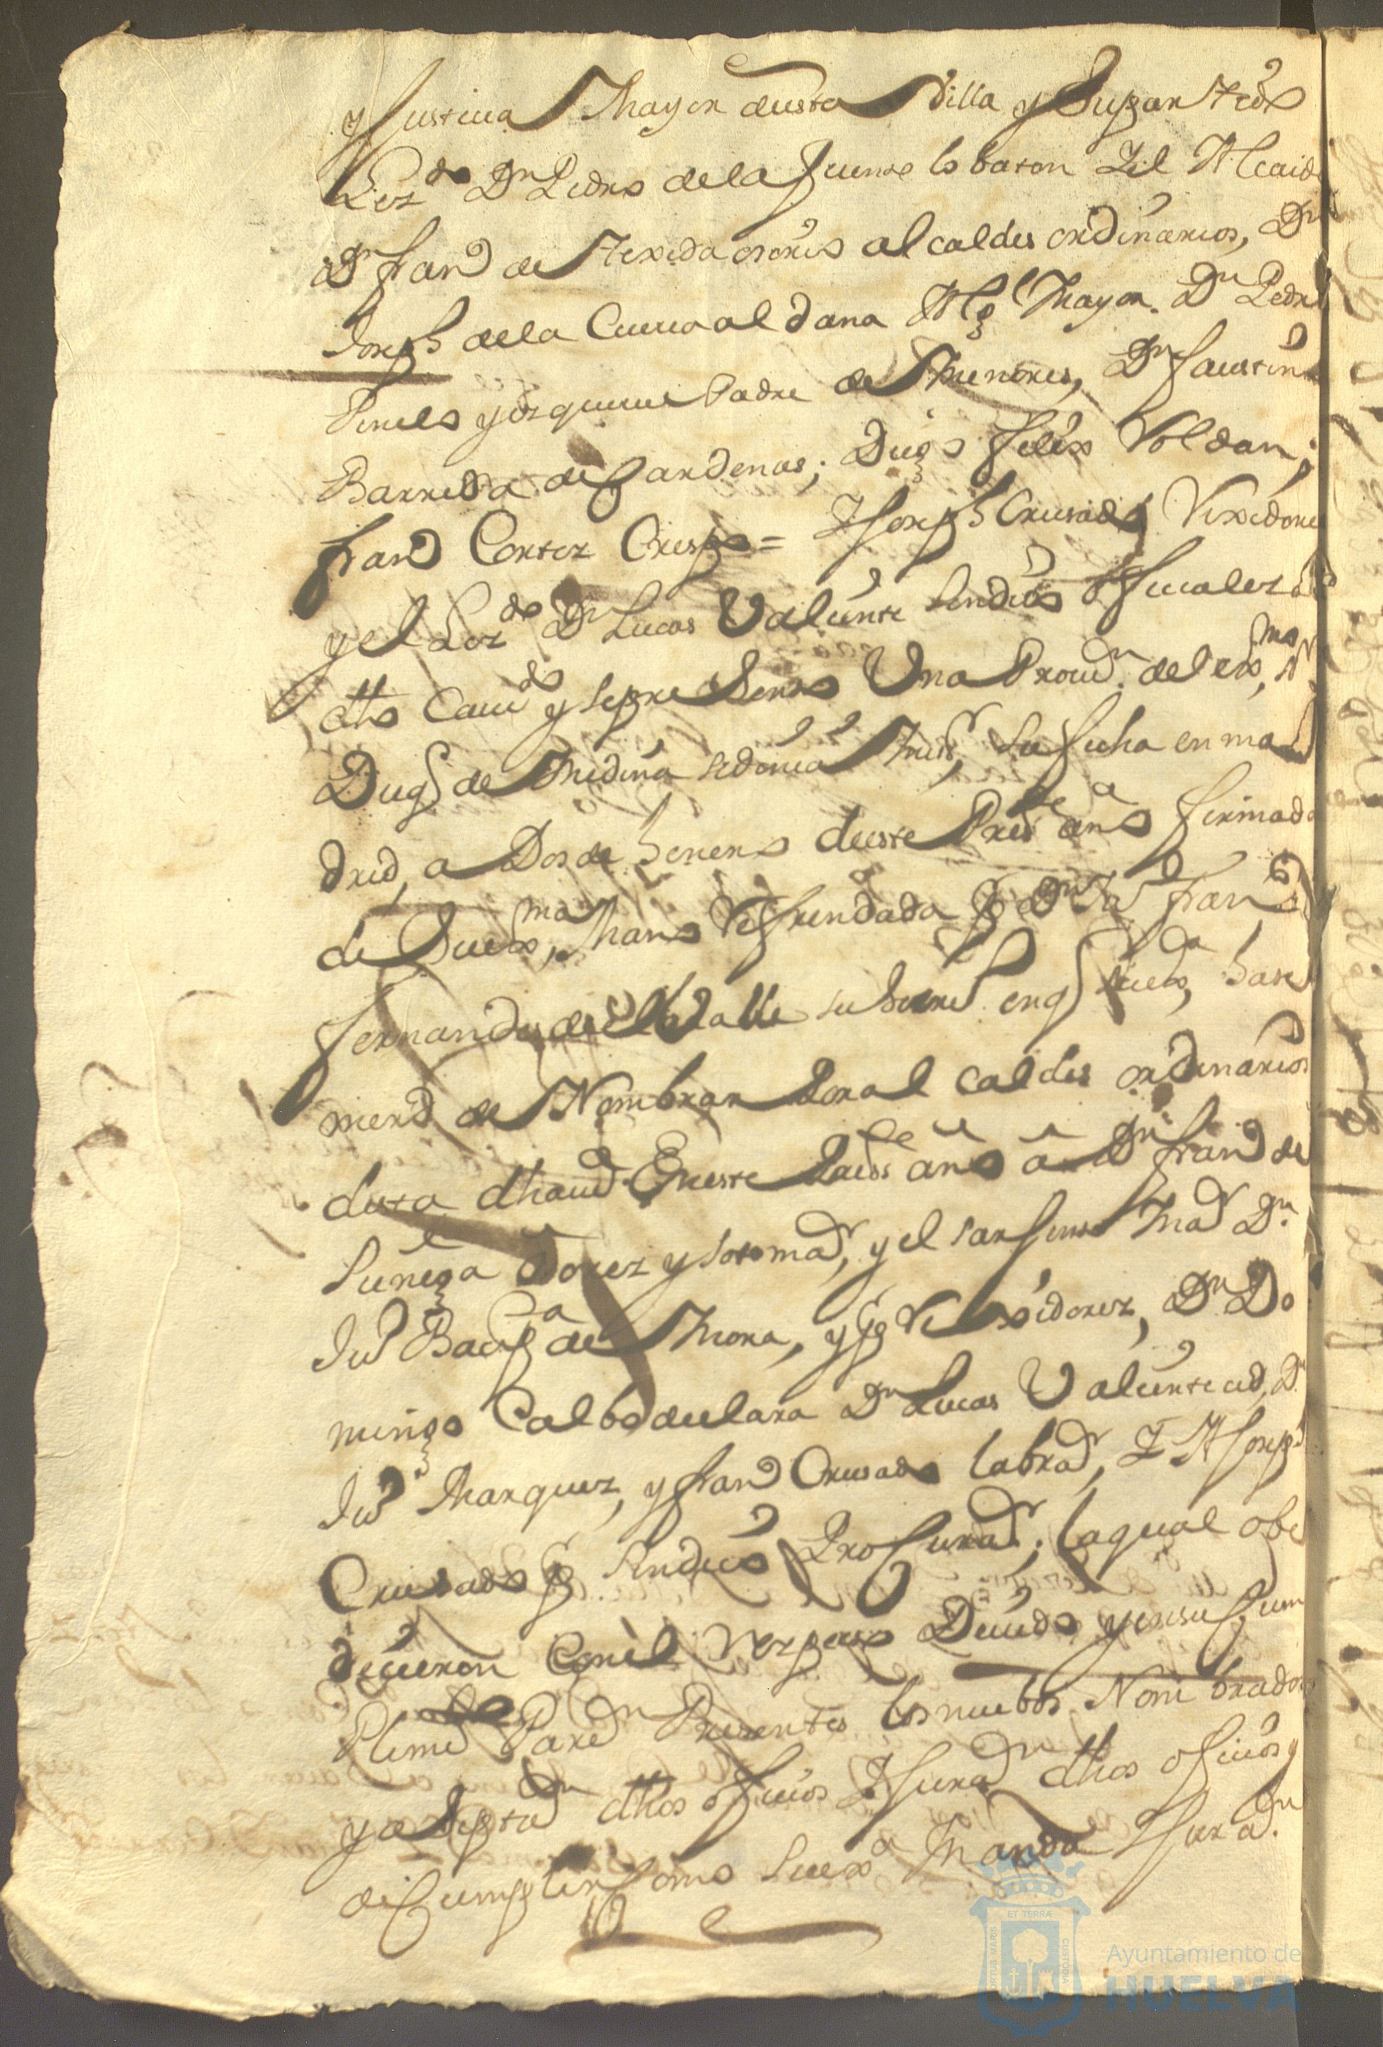 y Justicia Mayor desta Villa y su partido
Lizdo Dn Pedro de la fuente lobaton Y el Alcaide
Dn Franco de Texeda osorio alcaldes ordinarios, Dn
Joseph de la Cueva aldana Algl Mayor. Dn Pedro
Pinelo y esquivel Padre de Menores, Dn faustino
Barreda de Cardenas; Diego felix Roldan;
Franco Cortez Crespo = Y Joseph Crusado Rexidores
y el Lizdo Dn Lucas Valiente sindico
dho Cavdo y se presento Una Provion del exmo, Sr
Duq de Medina sidonia Mi sr, su fecha en ma
drid, a Dos de henero deeste Preste año firmada
de su exma, Mano Refrendada por Dn Franco
fernandes del Valle su Secreto en q su exa, hase
merd de Nombrar Por alcaldes ordinarios
desta dha Eneste Preste año â Dn Franco de
Suñega y sotomar, y el sarjento Mar Dn.
Jun Baupta de Mora, y por Rexidorez, Dn Do
mingo Calbo de lara Dn Lucas Valiente cid, Dn
Jun Marquez, y Franco Crusado labrador, Y A Joseph
Crusado por sindico Procurador; la qual obe
decieron Con el Respecto Devido y en su Cum
plimto Paron Presentes los nuebos Nombrados
y aseptaon dhos ofisios Y Juraon dhos ofisios y
de Cumplir Como su exa Manda Juraon.
Ayuntamiento de
HUELVA